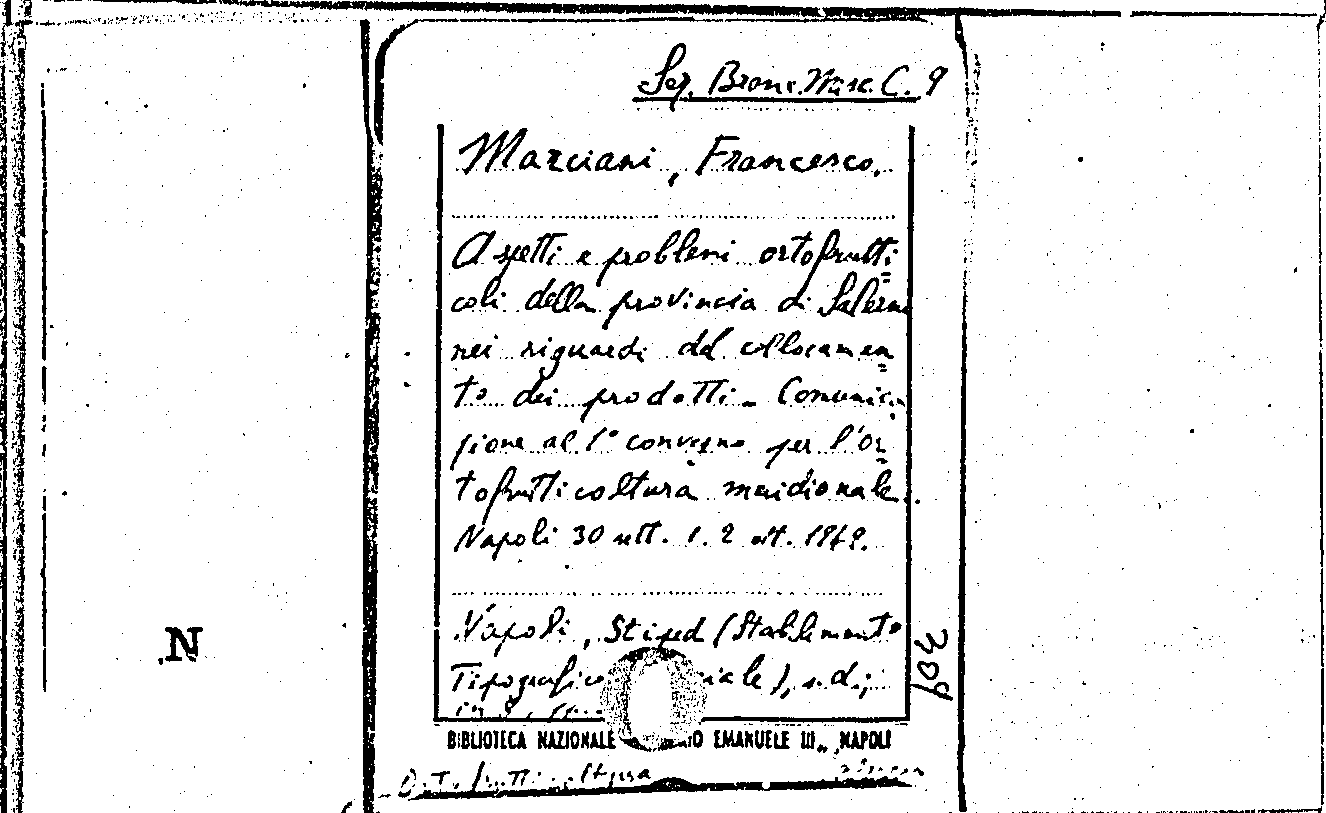 Marciani, Francesco.
Aspetti e problemi ortofrutti
coli della provincia di Salerno
nei riguardi del collocamen
to dei prodotti. Comunica
zione al 1° convegno per l'or
tofrutticoltura meridionale.
Napoli 30 sett. 1. 2 ott.
Napoli, (Stabilimento
Tipografico
s.d.;
BIBLIOTECA NAZIONALE EMANUELE III„ NAPOLI
N